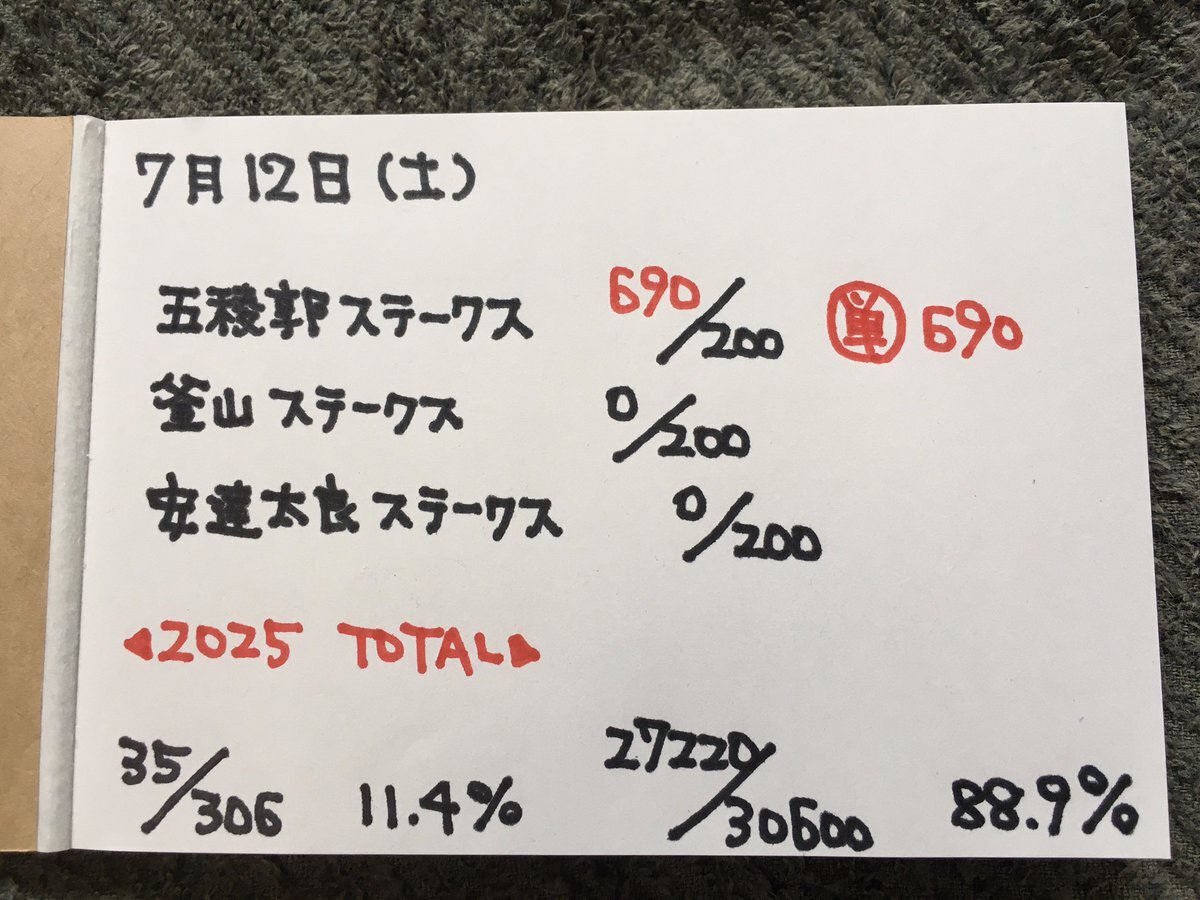 7月12日(土)
五稜郭ステークス 690/200 単 690
釜山ステークス 0/200
安達太良ステークス 0/200
◀2025 TOTAL▶
35/306 11.4% 27220/30600 88.9%